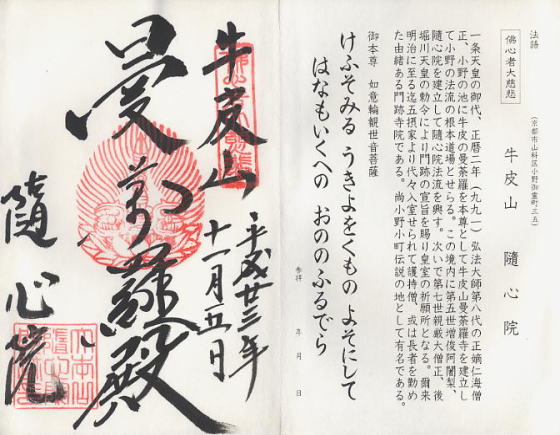 法語
佛心者大慈悲
(京都市山科区小野御霊町三五)
牛皮山 隨心院
一条天皇の御代、正暦二年(九九一)弘法大師第八代の正嫡仁海僧
正、小野の池に牛皮の曼荼羅を本尊として牛皮山曼荼羅寺を建立し
て小野の法流の根本道場とせらる。この境内に第五世増俊阿闍梨、
隨心院を建立して隨心院法流を興す。次いで第七世親厳大僧正、後
堀川天皇の勅令により門跡の宣旨を賜り皇室の祈願所となる。爾来
明治に至る迄五摂家より代々入室せられて護持僧、或は長者を勤め
た由緒ある門跡寺院である。尚小野小町伝説の地として有名である。
御本尊 如意輪観世音菩薩
けふそみる うきよをくもの よそにして
はなもいくへの おののふるでら
参拝 年 月 日
牛皮山
平成廿三年
十一月五日
曼荼羅殿
隨心院